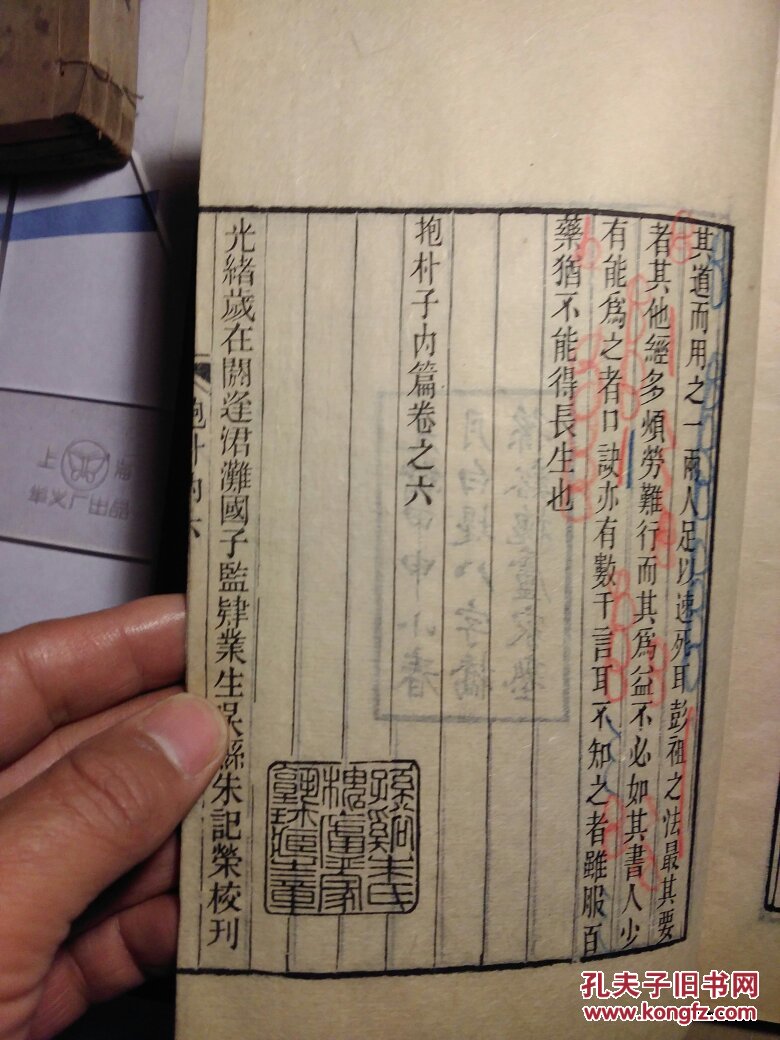 其道而用之一兩人足以速死耳彭祖之法最其要
者其他經多煩勞難行而其爲益不必如其書人少
有能爲之者口訣亦有數千言耳不知之者雖服百
藥猶不能得長生也
抱朴子內篇卷之六
光緒歲在閼逢涒灘國子監肄業生吳縣朱記榮校刊
抱朴內六
上海
孔夫子旧书网
www.kongfz.com